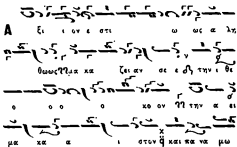 Α ξι ι ον ε στι ω ως α λη
θωως μα κα ζει αν σε ε την ι θε
ο ο ο ο κο ον την α ει
μα κα α ι στον και πα να μω